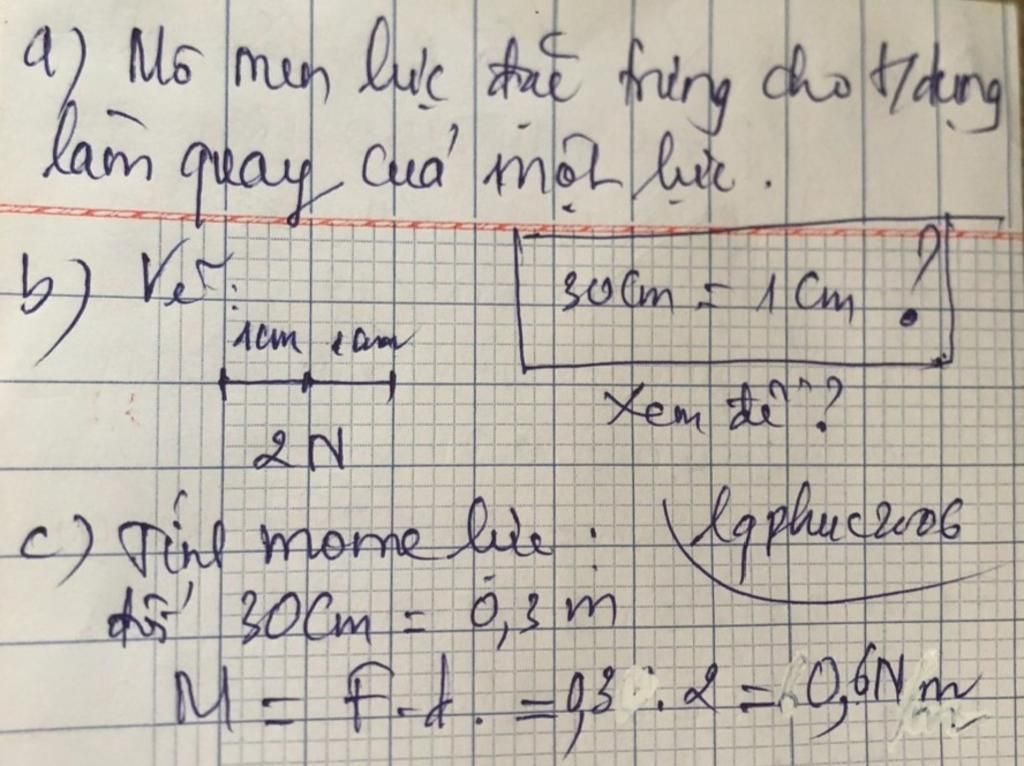 a) Mô men lực đặc trưng cho t/dụng
làm quay của một lực.
b) Vẽ:
30Cm = 1Cm ?
1cm 1cm
Xem đề??
2N
c) Tính mome lực :
lqphuc2006
đổi 30Cm = 0,3 m
M = F.d. = 0,3 . 2 = 0,6N m